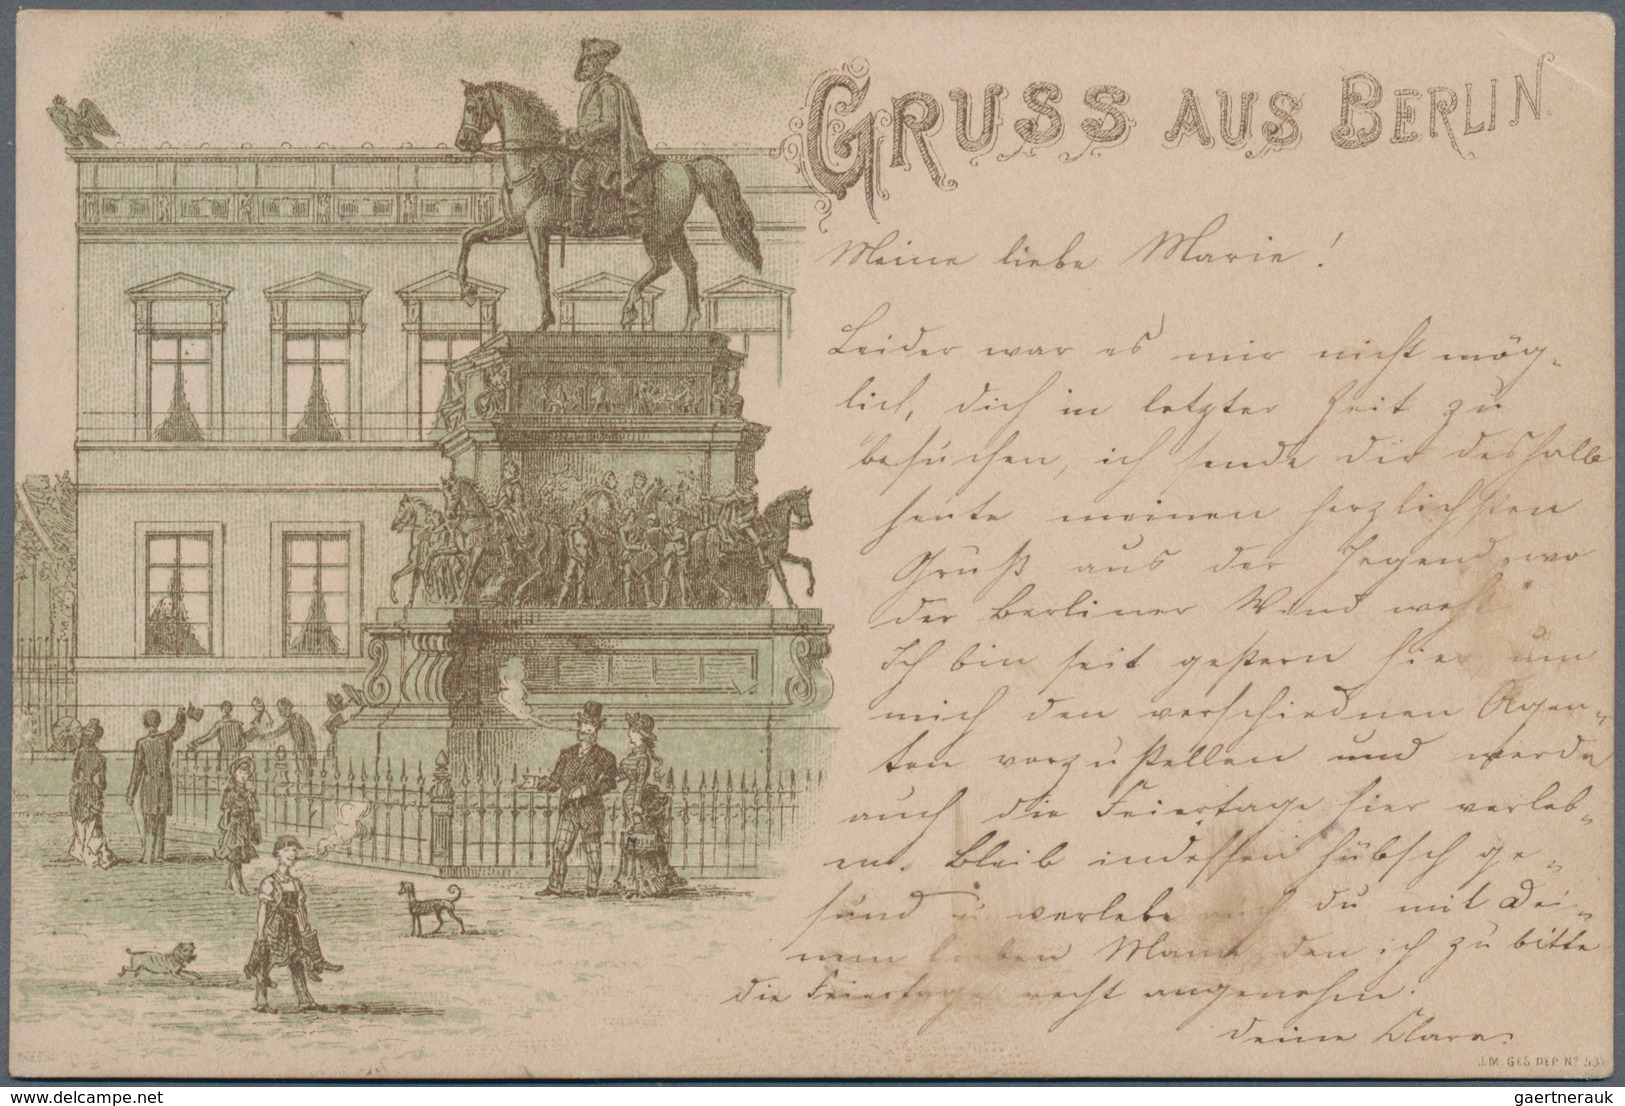 GRUSS AUS BERLIN
Meine liebe Marie!
Leider war es mir nicht mög-
lich, dich in letzter Zeit zu
besuchen, ich sende dir deshalb
heute meinen herzlichsten
Gruß aus der Gegend, wo
der Berliner Wind weht.
Ich bin seit gestern hier um
mich den verschiednen Agen-
ten vorzustellen und werde
auch die Feiertage hier verleb-
en. Bleib indessen hübsch ge-
sund u verlebe du mit Dei-
nen lieben den ich zu bitte
die Feiertage recht angenehm.
deine Clara.
J.M. GES. DEP. No 53
gaertnerauk